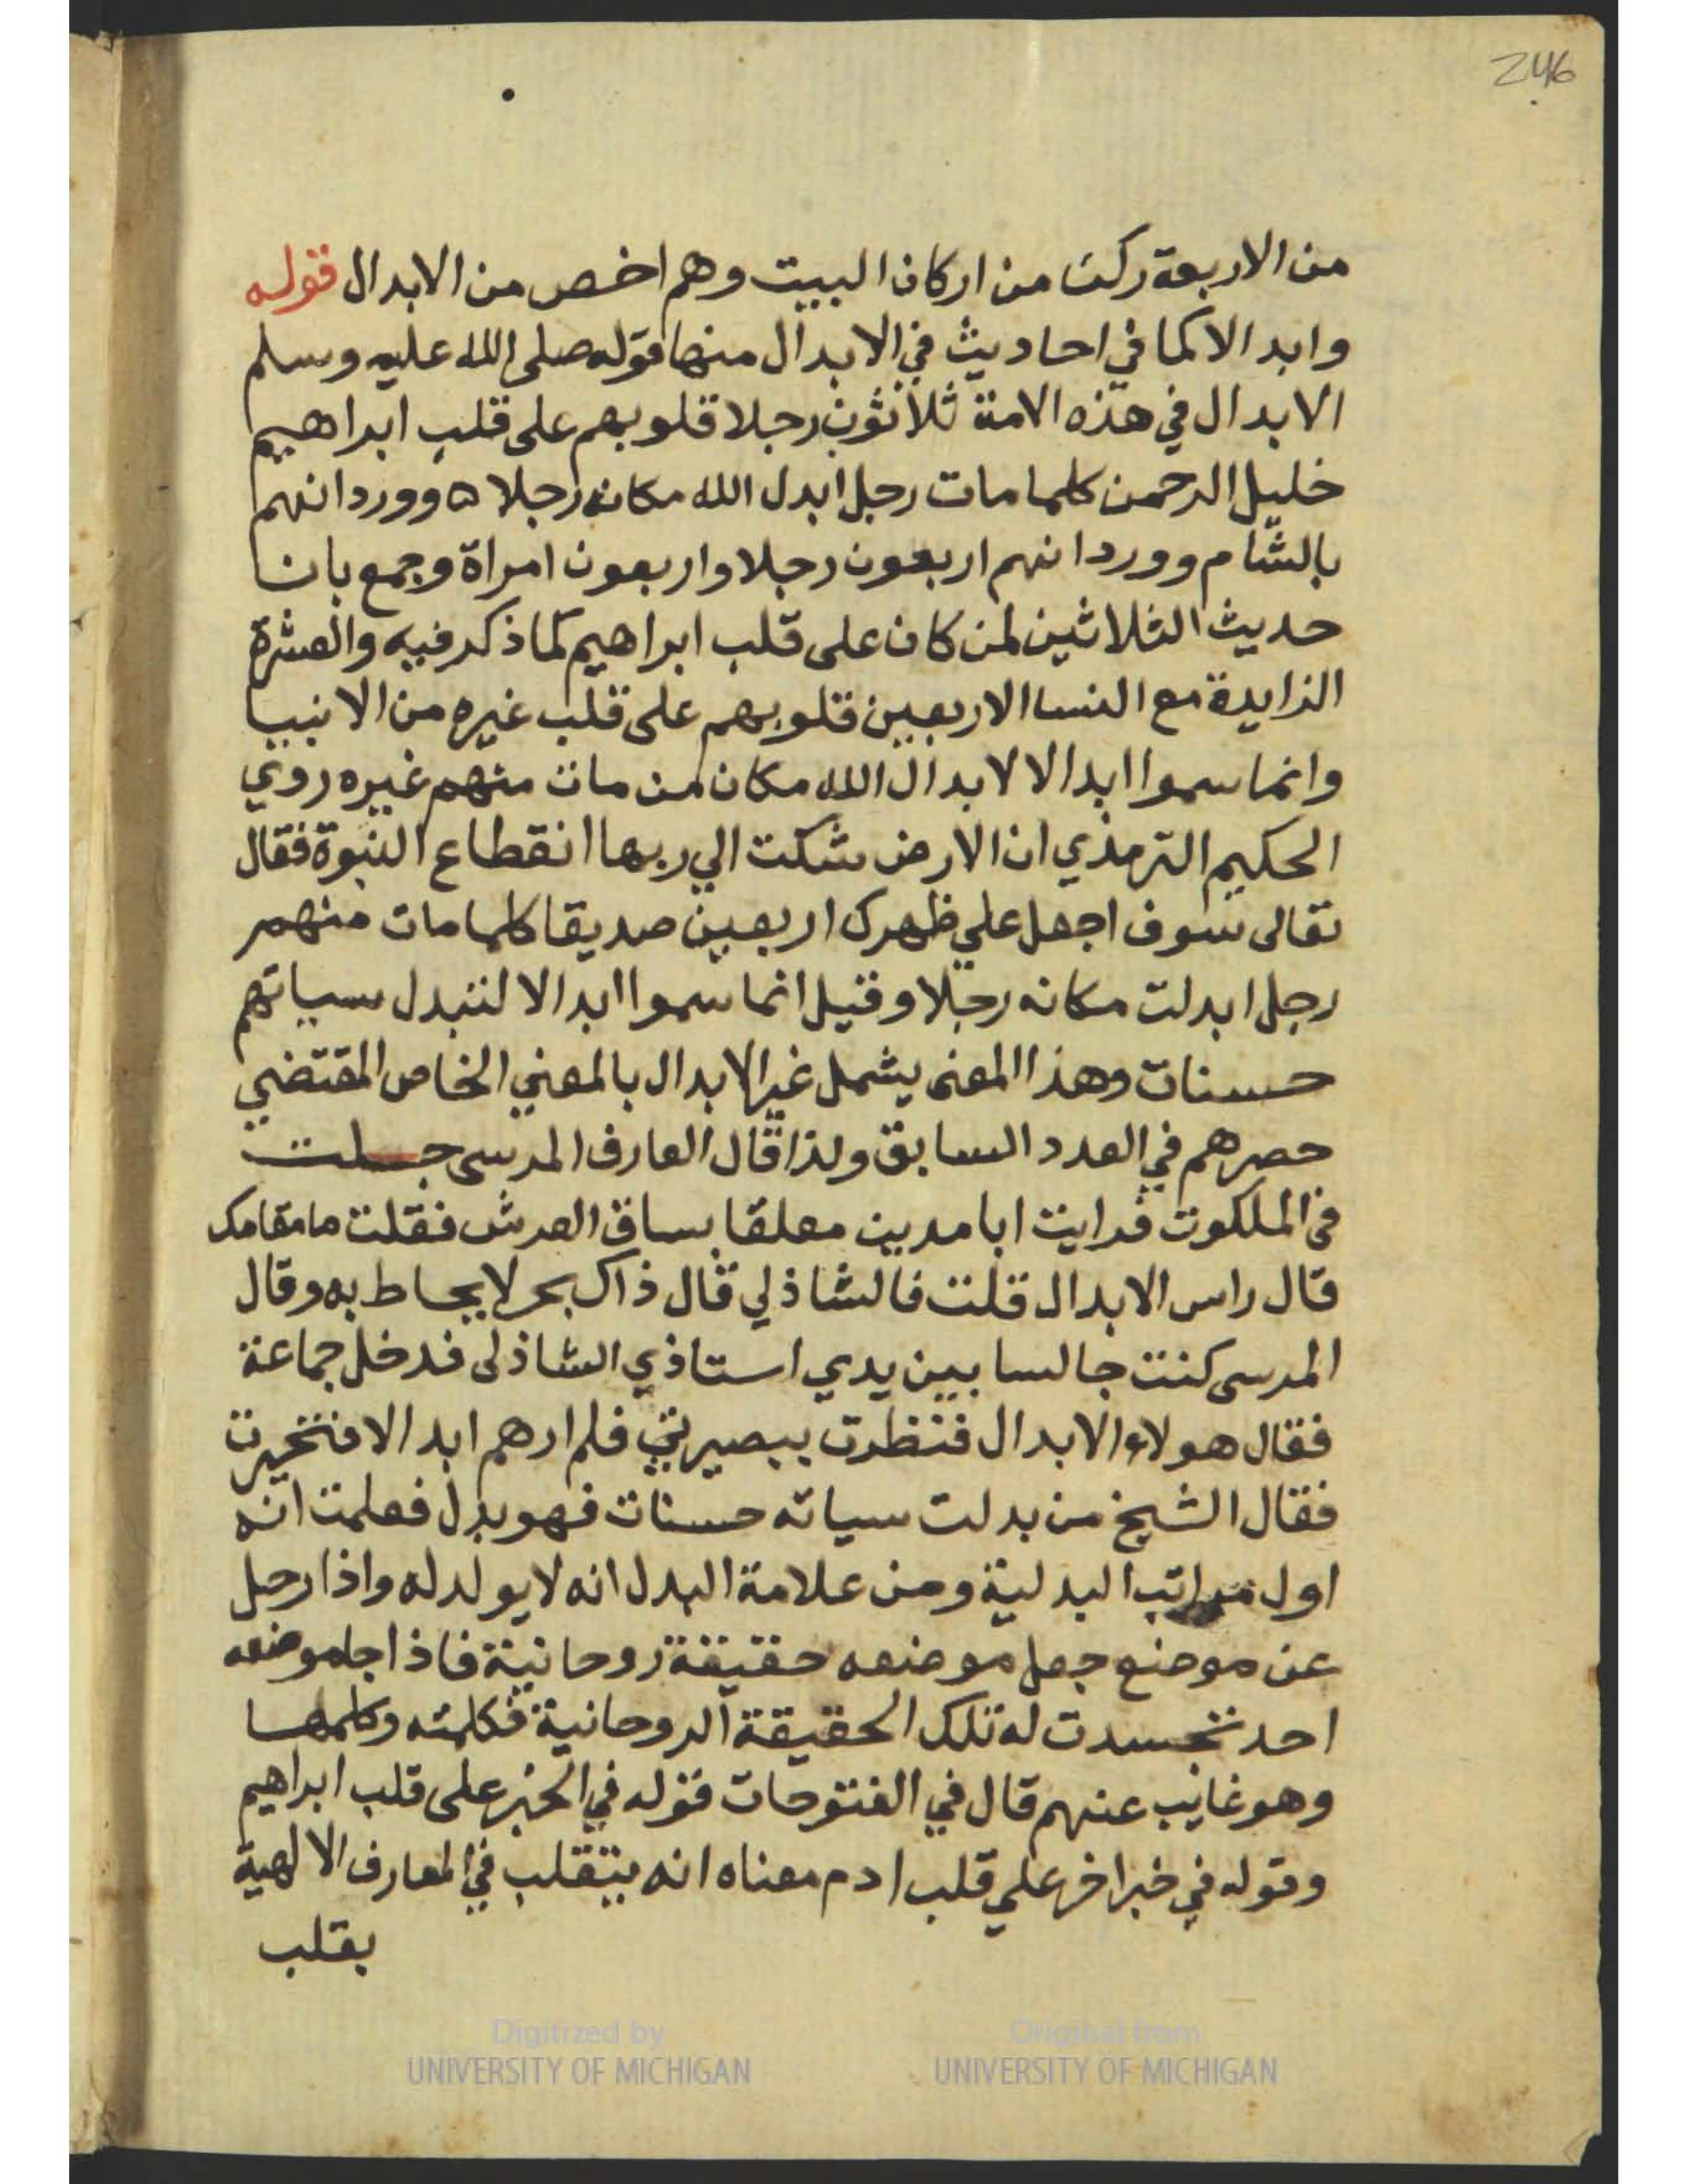 246
من الاربعة ركن من اركان البيت وهم اخص من الابدال قوله
وابدالا كما في احاديث في الابدال منها قوله صلى الله عليه وسلم
الابدال في هذه الامة ثلاثون رجلا قلوبهم على قلب ابراهيم
خليل الرحمن كلما مات رجل ابدل الله مكانه رجلا ه وورد انهم
بالشام وورد انهم اربعون رجلا واربعون امراة وجمع بان
حديث الثلاثين لمن كان على قلب ابراهيم كما ذكر فيه والعشرة
الزايدة مع النسا الاربعين قلوبهم على قلب غيره من الانبيا
وانما سموا ابدالا لابدال الله مكان من مات منهم غيره روي
الحكيم الترمذي ان الارض شكت الي ربها انقطاع النبوة فقال
تعالى سوف اجعل علي ظهرك اربعين صديقا كلما مات منهم
رجل ابدلت مكانه رجلا وقيل انما سموا ابدالا لتبدل سياتهم
حسنات وهذا المعنى يشمل غير الابدال بالمعني الخاص المقتضي
حصرهم في العدد السابق ولذا قال العارف المرسى جلت
في الملكوت فرايت ابا مدين معلقا بساق العرش فقلت ما مقامك
قال راس الابدال قلت فالشاذلي قال ذاك بحر لا يحاط به وقال
المرسى كنت جالسا بين يدي استاذي الشاذلى فدخل جماعة
فقال هولاء الابدال فنظرت ببصيرتي فلم ارهم ابدالا فتحيرت
فقال الشيخ من بدلت سياته حسنات فهو بدل فعلمت انه
اول مراتب البدلية ومن علامة البدل انه لا يولد له واذا رحل
عن موضع جعل موضعه حقيقة روحانية فاذا جا موضعه
احد تجسدت له تلك الحقيقة الروحانية فكلمته وكلمها
وهو غايب عنهم قال في الفتوحات قوله في الخبر على قلب ابراهيم
وقوله في خبر اخر علي قلب ادم معناه انه يتقلب في المعارف الالهية
بقلب
Digitized by
UNIVERSITY OF MICHIGAN
Original from
UNIVERSITY OF MICHIGAN